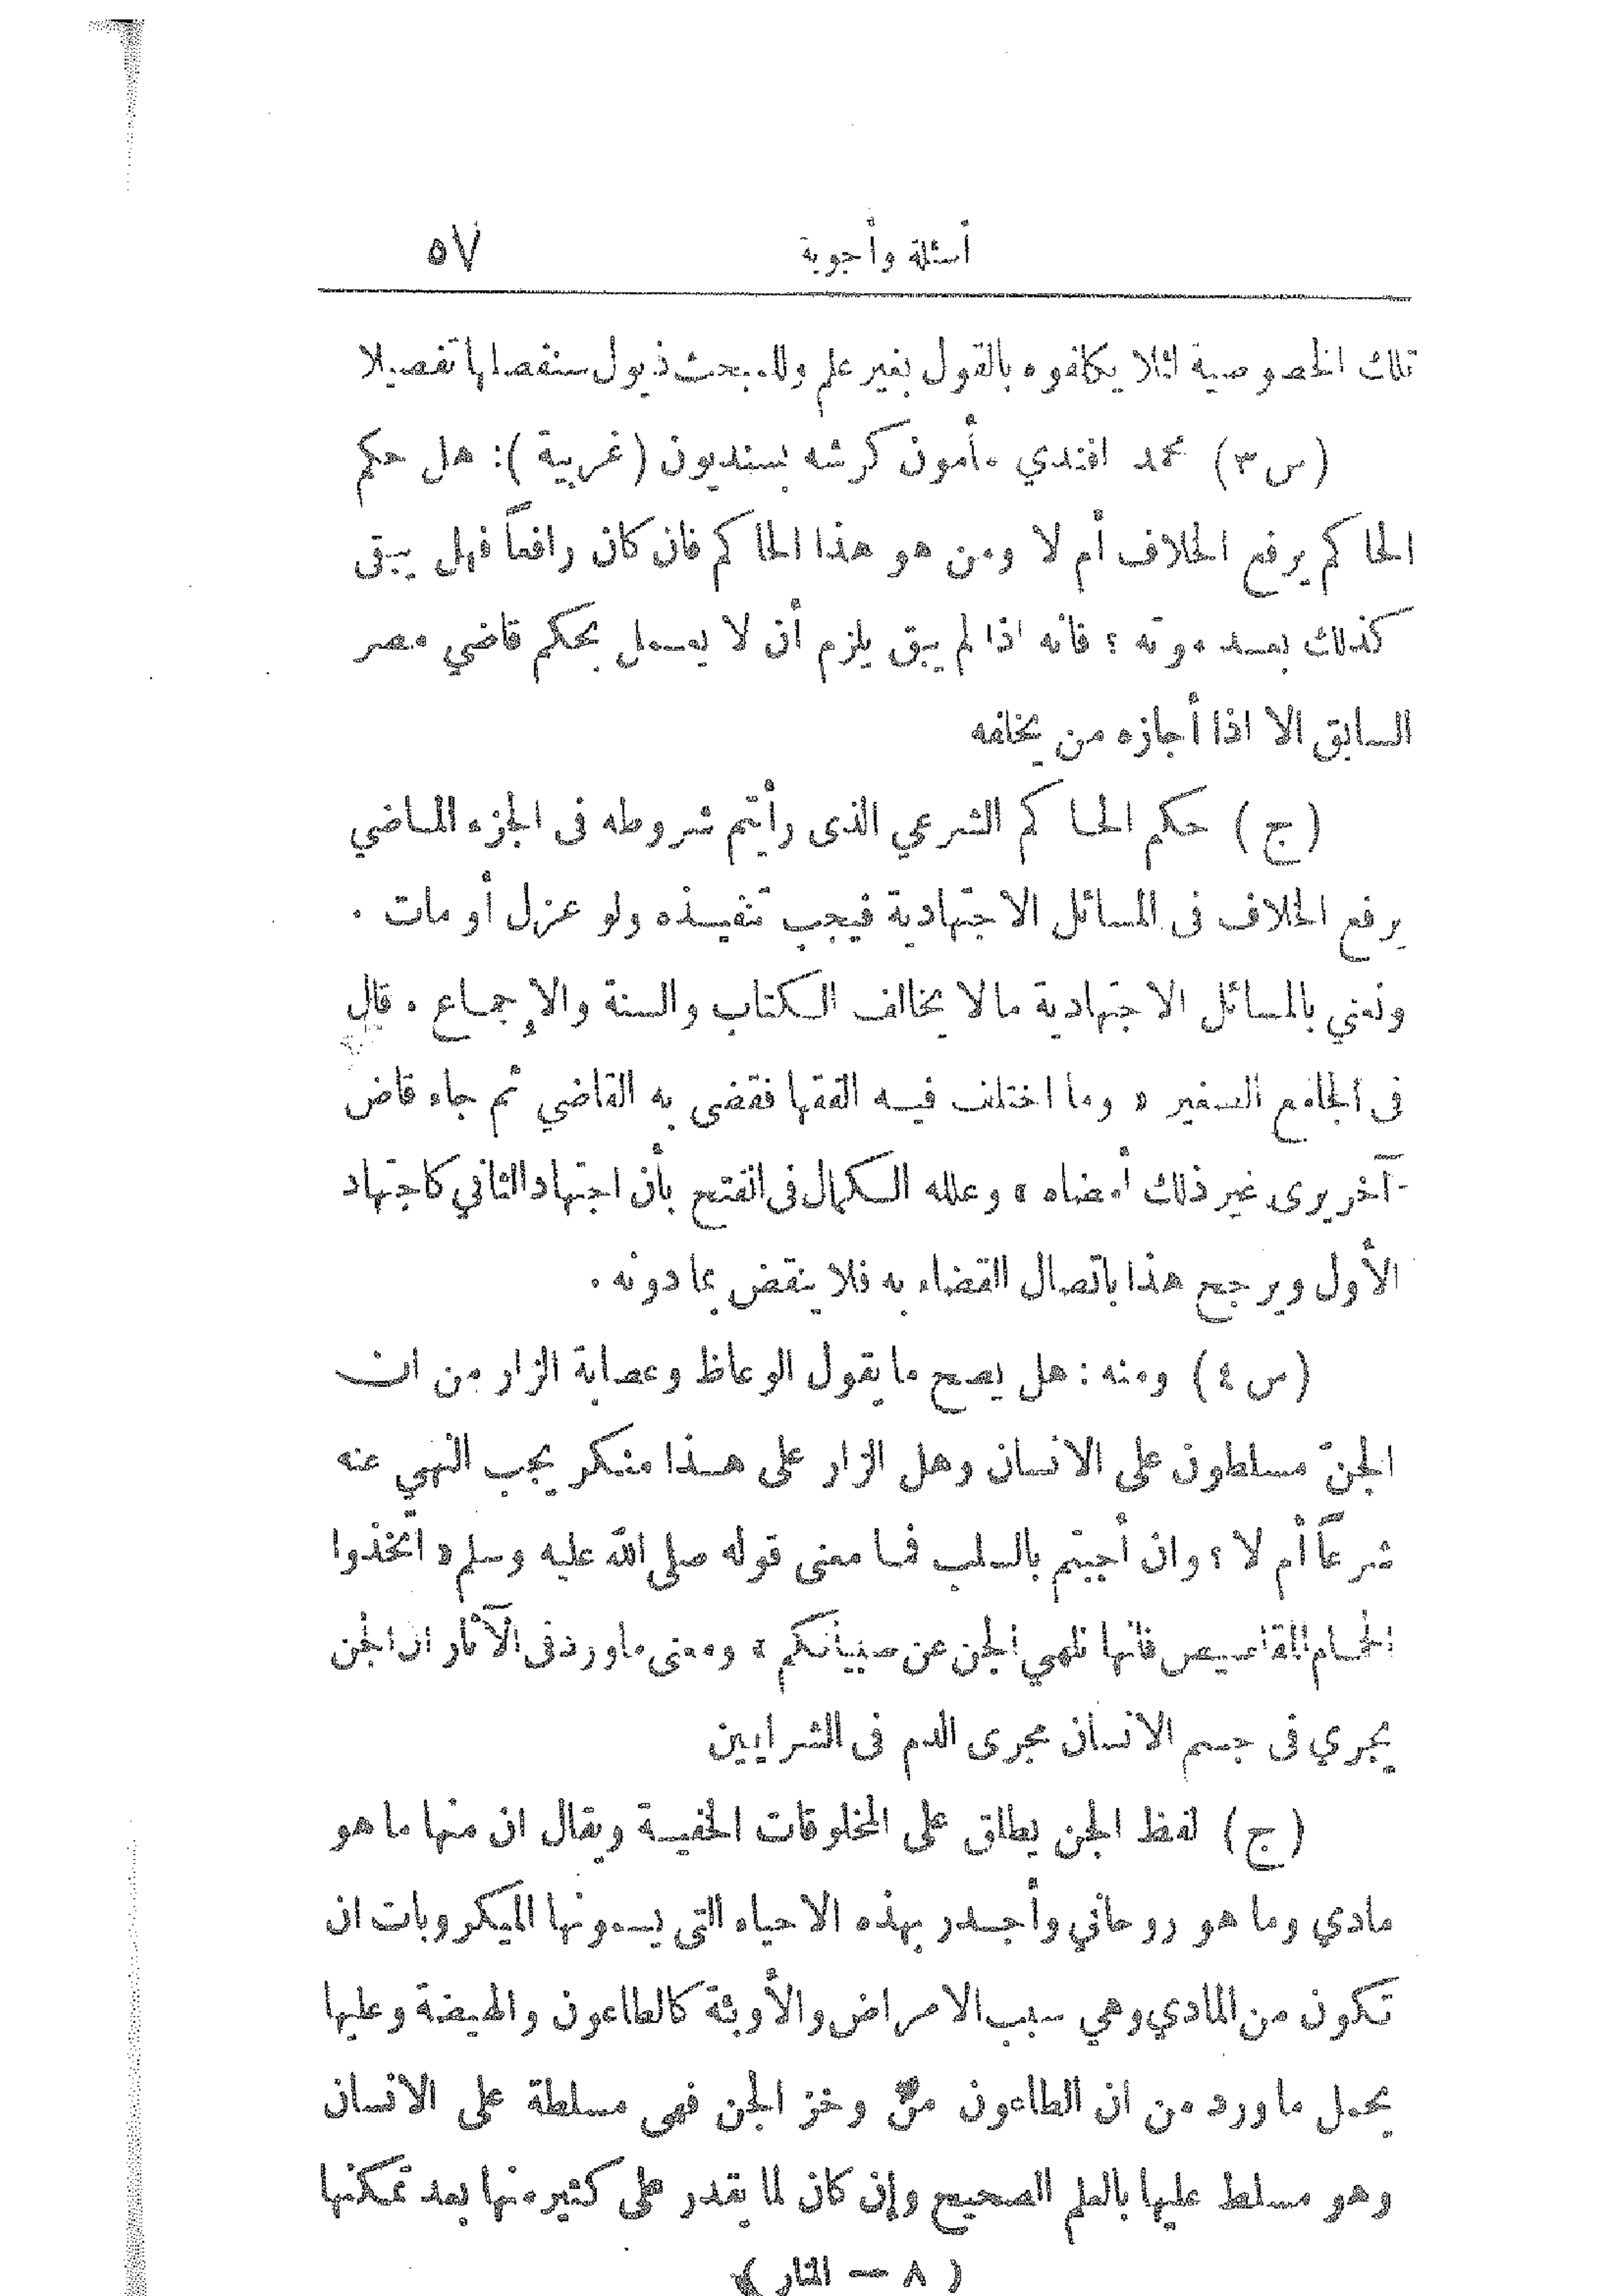 أسئلة وأجوبة ٥٧
تلك الخصوصية لئلا يكلفوه بالقول بغير علم وللمبحث ذيول سنفصلها تفصيلا
(س٣) محمد افندي مأمون كرشه بسنديون (غربية): هل حكم
الحاكم يرفع الخلاف أم لا ومن هو هذا الحاكم فان كان رافعاً فهل يبقى
كذلك بعد موته ؟ فانه اذا لم يبق يلزم أن لا يعمل بحكم قاضي مصر
السابق الا اذا أجازه من يخلفه
(ج) حكم الحاكم الشرعي الذى رأيتم شروطه فى الجزء الماضي
يرفع الخلاف فى المسائل الاجتهادية فيجب تنفيذه ولو عزل أو مات .
ونعني بالمسائل الاجتهادية مالا يخالف الكتاب والسنة والإجماع . قال
فى الجامع الصغير « وما اختلف فيه الفقها فقضى به القاضي ثم جاء قاض
آخر يرى غير ذلك أمضاه » وعلله الكمال فى الفتح بأن اجتهاد الثاني كاجتهاد
الأول ويرجح هذا باتصال القضاء به فلا ينقض بما دونه .
(س ٤) ومنه : هل يصح ما يقول الوعاظ وعصابة الزار من ان
الجنّ مسلطون على الانسان وهل الزار على هذا منكر يجب النهي عنه
شرعاً أم لا ؟ وان أجبتم بالسلب فما معنى قوله صلى الله عليه وسلم « اتخذوا
الحمام المقاصيص فانها تلهي الجن عن صبيانكم » ومعنى ماورد فى الآثار ان الجن
يجري فى جسم الانسان مجرى الدم فى الشرايين
(ج) لفظ الجن يطلق على المخلوقات الخفية ويقال ان منها ما هو
مادي وما هو روحاني وأجدر بهذه الاحياء التى يسمونها الميكروبات ان
تكون من المادي وهي سبب الامراض والأوبئة كالطاعون والهيضة وعليها
يحمل ما ورد من ان الطاعون من وخز الجن فهي مسلطة على الانسان
وهو مسلط عليها بالعلم الصحيح وإن كان لما يقدر على كثير منها بعد تمكنها
( ٨ — المنار )